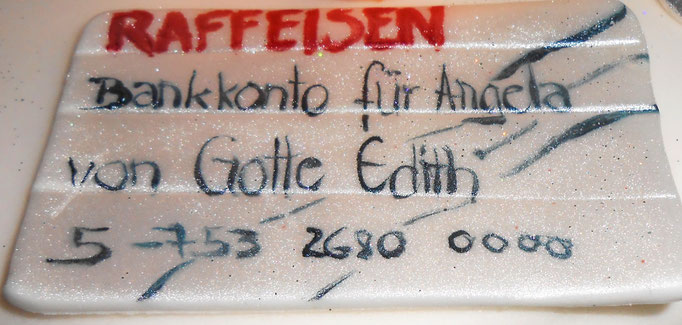 RAFFEISEN
Bankkonto für Angela
von Gotte Edith
5-753 2680 0000